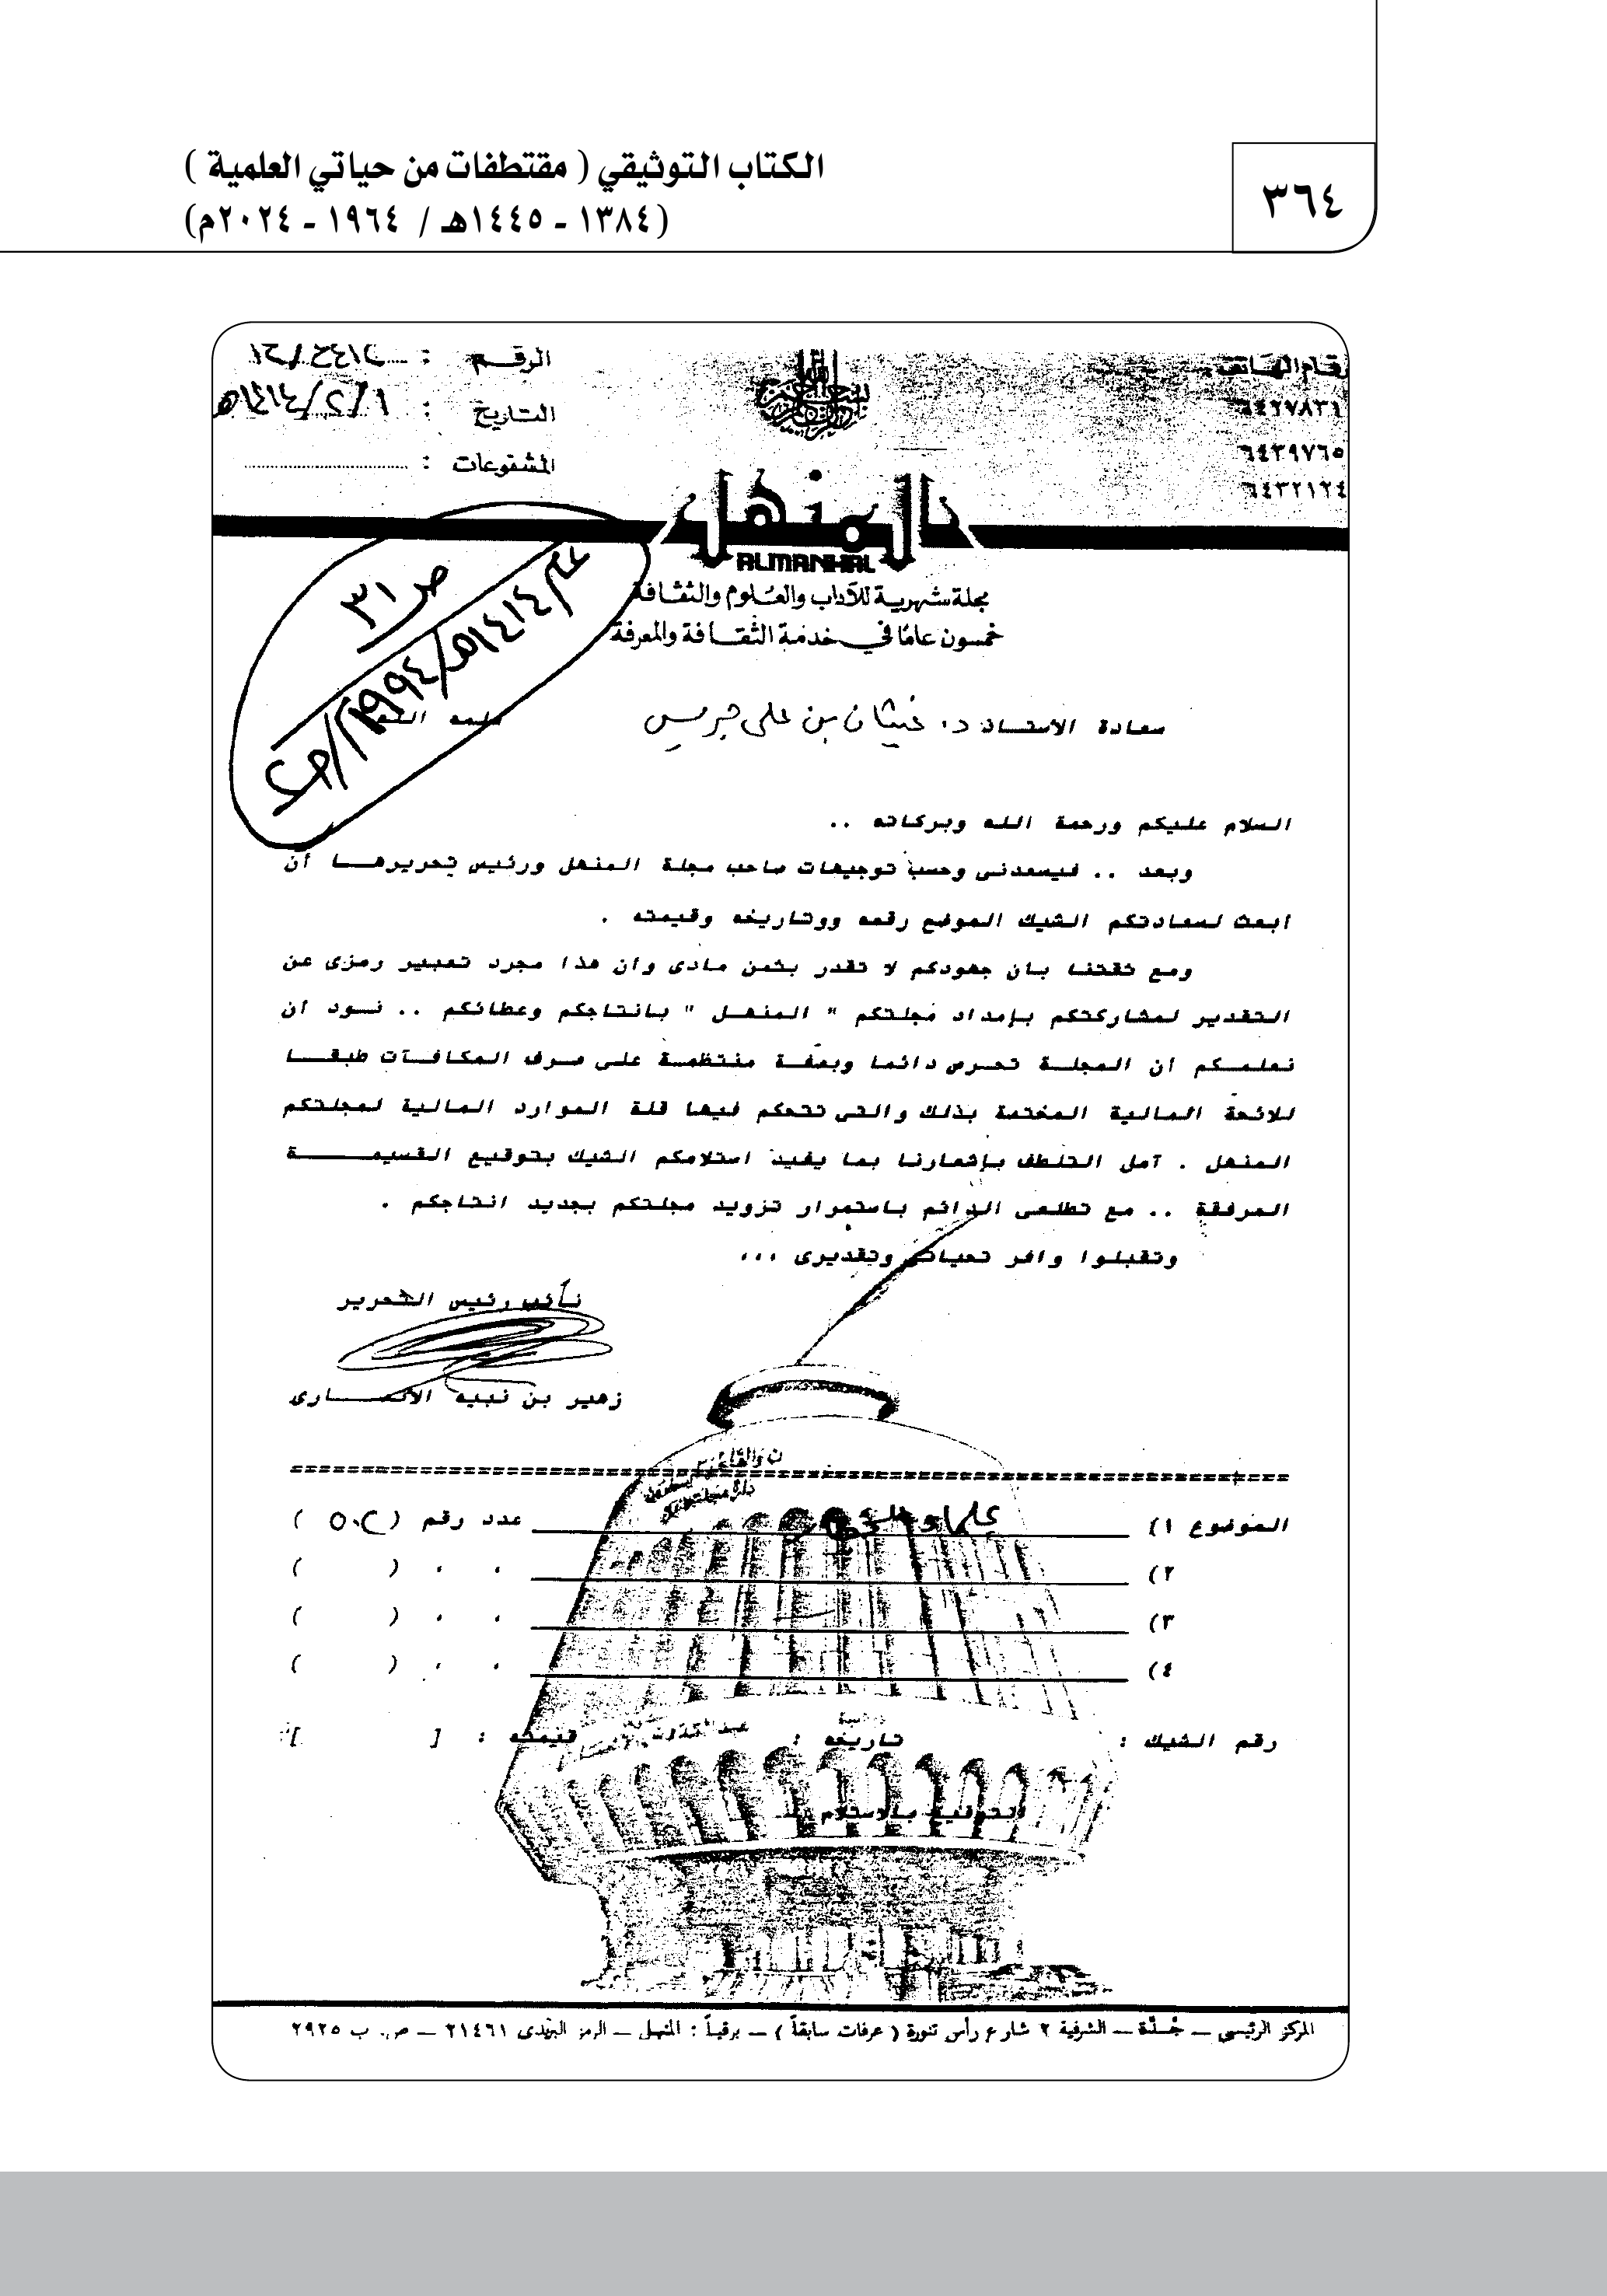 ٣٦٤
الكتاب التوثيقي ( مقتطفات من حياتي العلمية )
(١٣٨٤ ـ ١٤٤٥هـ / ١٩٦٤ ـ ٢٠٢٤م)
٦٤٢٧٨٣١
٦٤٣٩٧٦٥
٦٤٣٢١٢٤
الرقــم :
التاريخ :
المشفوعات :
المنهل
ALMANHAL
مجلة شهرية للآداب والعلوم والثقافة
خمسون عامًا في خدمة الثقافة والمعرفة
ص ٣١
عام ١٤١٤هـ/١٩٩٤م/م٢
سعادة الاستاذ د. غيثان بن علي جريس
السلام عليكم ورحمة الله وبركاته ..
وبعد .. فيسعدنى وحسب توجيهات صاحب مجلة المنهل ورئيس تحريرهـا أن
ابعث لسعادتكم الشيك الموضع رقمه ووتاريخه وقيمته .
ومع ثقتنا بان جهودكم لا تقدر بثمن مادى وان هذا مجرد تعبير رمزى عن
التقدير لمشاركتكم بإمداد مجلتكم " المنهـل " بانتاجكم وعطائكم .. نـود أن
نعلمـكم أن المجلـة تحـرص دائما وبصفـة منتظمـة على صـرف المكافـآت طبقـا
للائحة المالية المختصة بذلك والتى تتحكم فيها قلة الموارد المالية لمجلتكم
المنهل . آمل التلطف بإشعارنا بما يفيد استلامكم الشيك بتوقيع القسيمـــة
المرفقة .. مع تطلعى الدائم باستمرار تزويد مجلتكم بجديد انتاجكم .
وتقبلوا وافر تحياتى وتقديرى ...
نائب رئيس التحرير
زهير بن نبيه الانصـارى
الموضوع ١) عدد رقم (٥٠٢)
٢) ( )
٣) ( )
٤) ( )
رقم الشيك : تاريخه : قيمته : [ ]
التوقيع بالاستلام
المركز الرئيسي ــ جُـدّة ــ الشرفية ٢ شارع رأس تنورة ( عرفات سابقاً ) ــ برقيـاً : المنهل ــ الرمز البريدى ٢١٤٦١ ــ ص. ب ٢٩٢٥